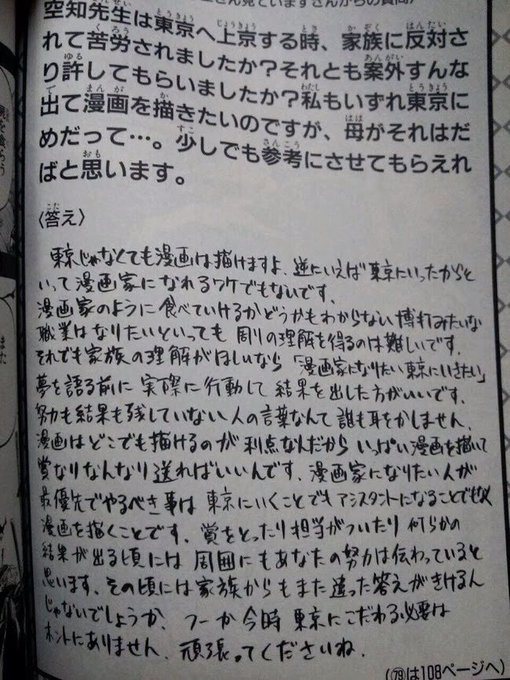 生見ていますさんからの質問〉
空知先生は東京へ上京する時、家族に反対さ
れて苦労されましたか?それとも案外すんな
り許してもらいましたか?私もいずれ東京に
出て漫画を描きたいのですが、母がそれはだ
めだって…。少しでも参考にさせてもらえれ
ばと思います。
〈答え〉
東京じゃなくても漫画は描けますよ、逆にいえば東京にいったからと
いって漫画家になれるワケでもないです。
漫画家のように食べていけるかどうかもわからない博打みたいな
職業はなりたいといっても周りの理解を得るのは難しいです。
それでも家族の理解がほしいなら「漫画家になりたい東京にいきたい」
夢を語る前に実際に行動して結果を出した方がいいです。
努力も結果も残していない人の言葉なんて誰も耳をかしません。
漫画はどこでも描けるのが利点なんだからいっぱい漫画を描いて
賞なりなんなり送ればいいんです。漫画家になりたい人が
最優先でやるべき事は東京にいくことでもアシスタントになることでもなく
漫画を描くことです。賞をとったり担当がついたり何らかの
結果が出る頃には周囲にもあなたの努力は伝わっていると
思います。その頃には家族からもまた違った答えがきけるん
じゃないでしょうか、つーか今時東京にこだわる必要は
ホントにありません。頑張ってくださいね。
(79は108ページへ)